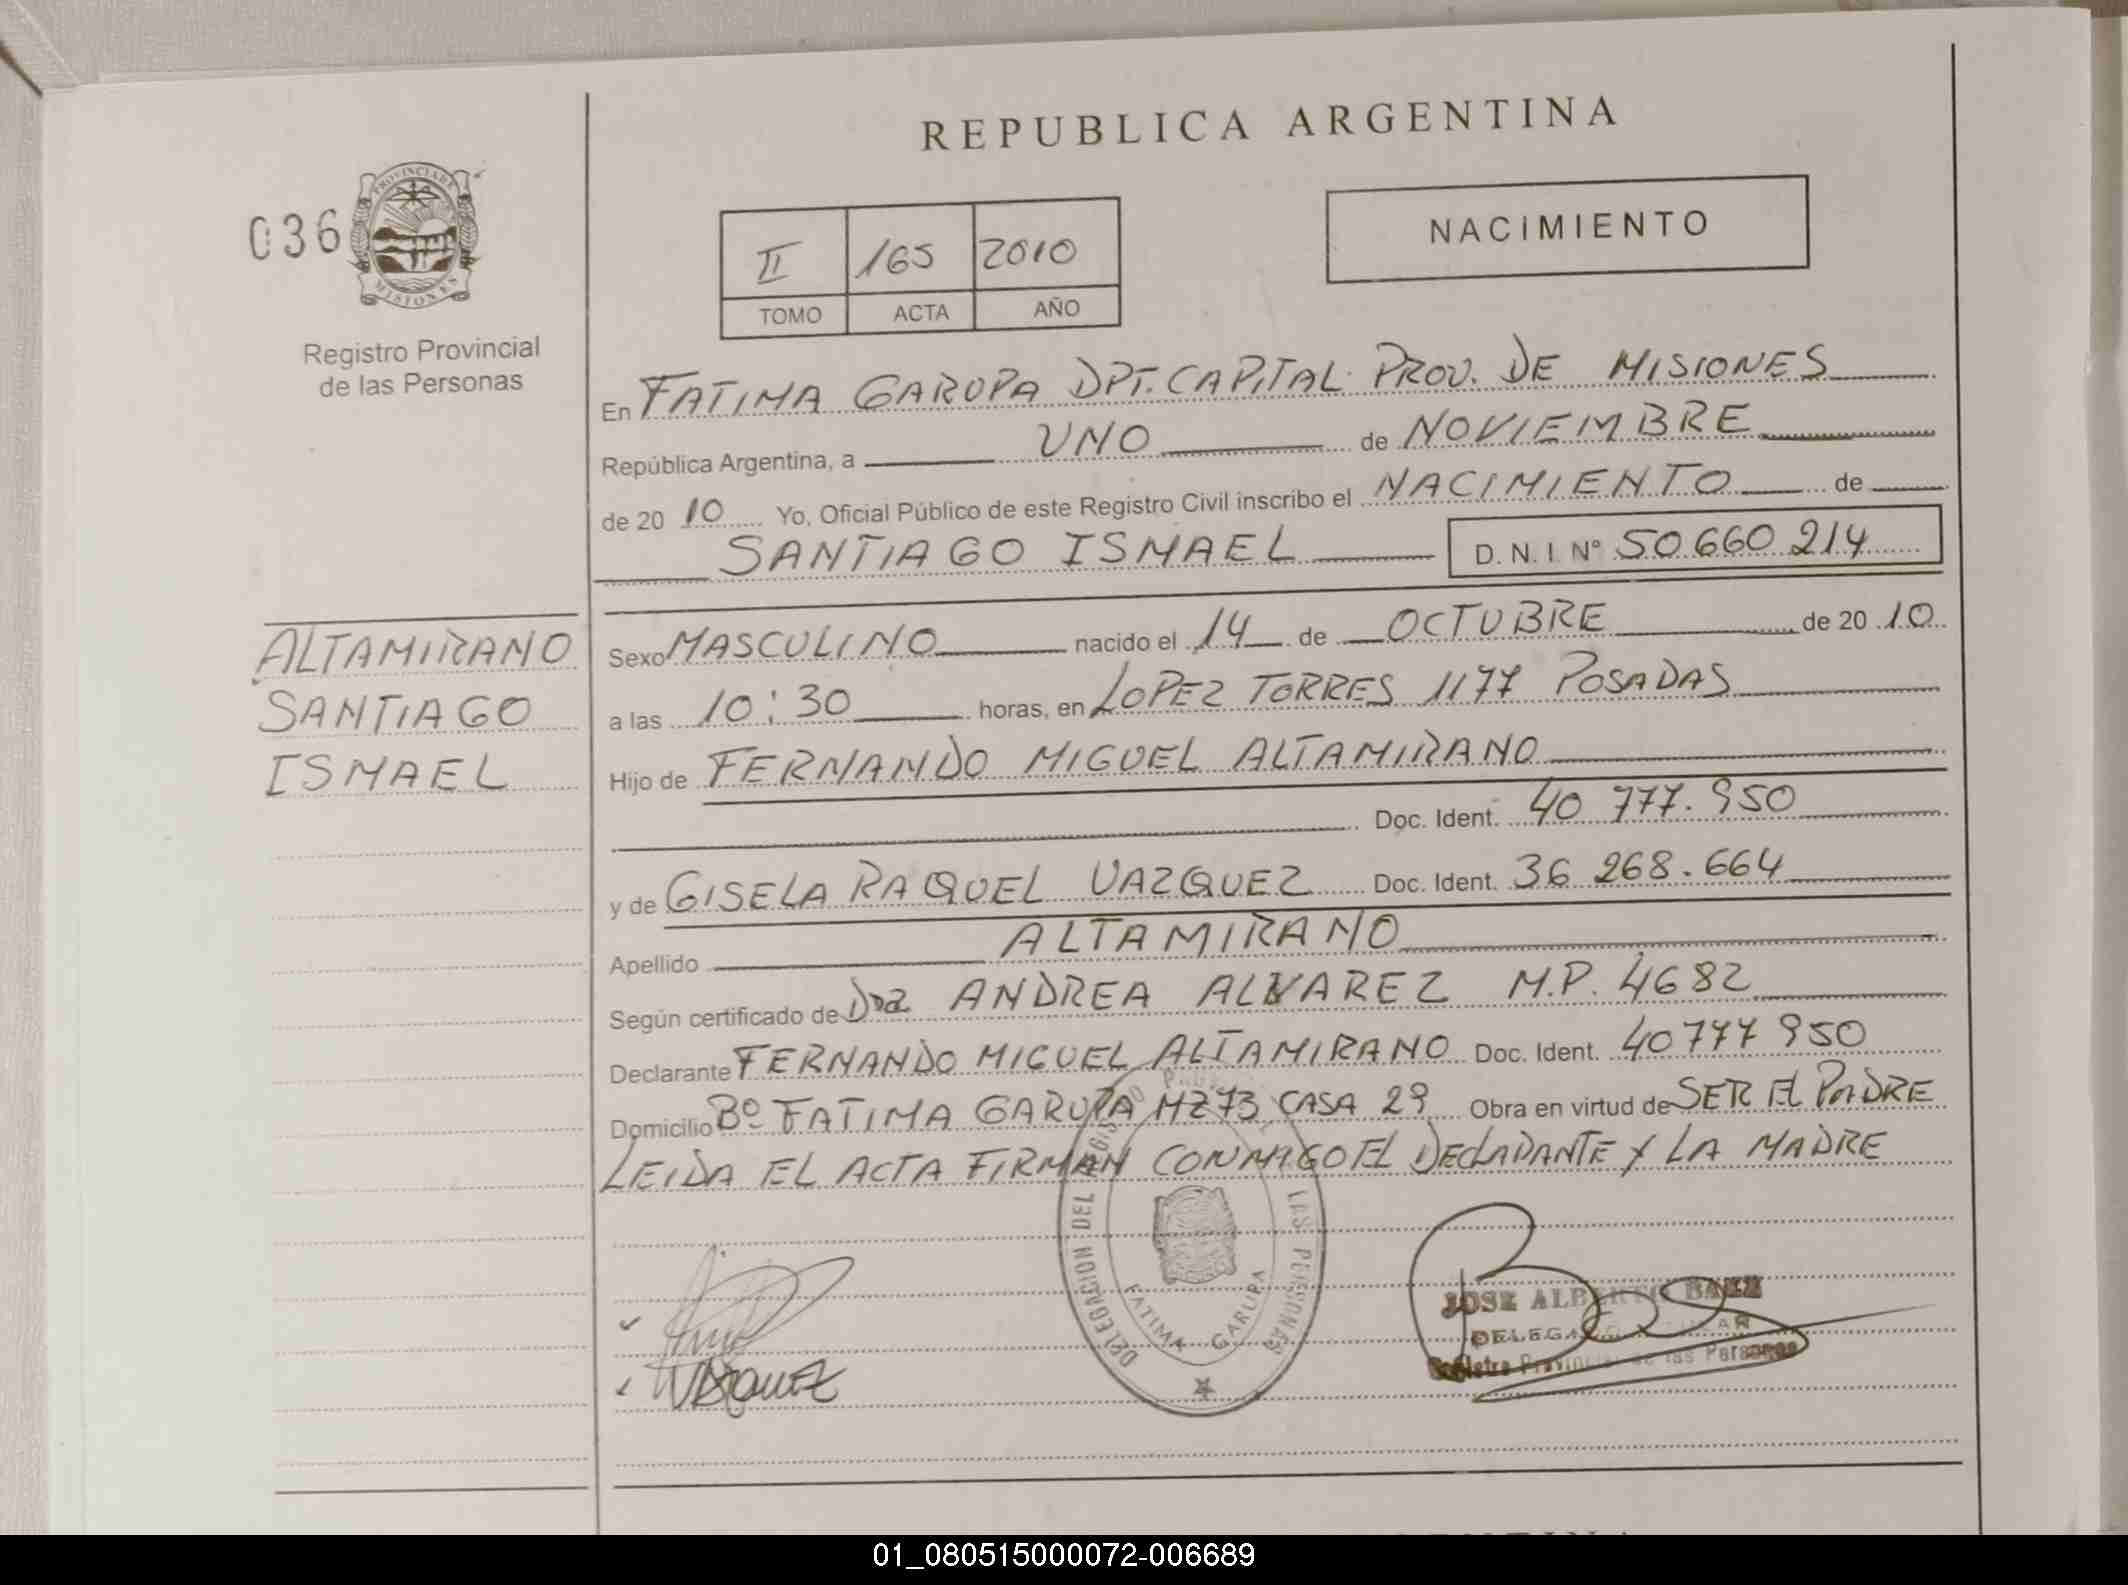 REPUBLICA ARGENTINA
036
PROVINCIA DE
MISIONES
Registro Provincial
de las Personas
II 165 2010
TOMO ACTA AÑO
NACIMIENTO
En FATIMA GARUPA DPT. CAPITAL PROV. DE MISIONES
República Argentina, a UNO de NOVIEMBRE
de 20 10 Yo, Oficial Público de este Registro Civil inscribo el NACIMIENTO de
SANTIAGO ISMAEL D. N. I. N° 50.660 214
ALTAMIRANO
SANTIAGO
ISMAEL
Sexo MASCULINO nacido el 14 de OCTUBRE de 20 10
a las 10:30 horas, en LOPEZ TORRES 1177 POSADAS
Hijo de FERNANDO MIGUEL ALTAMIRANO
Doc. Ident. 40 777.950
y de GISELA RAQUEL VAZQUEZ Doc. Ident. 36 268.664
Apellido ALTAMIRANO
Según certificado de Dra ANDREA ALVAREZ M.P. 4682
Declarante FERNANDO MIGUEL ALTAMIRANO Doc. Ident. 40 777 950
Domicilio Bº FATIMA GARUPA MZ 73 CASA 29 Obra en virtud de SER EL PADRE
LEIDA EL ACTA FIRMAN CONMIGO EL DECLARANTE Y LA MADRE
DELEGACION DEL REGISTRO LAS PERSONAS
FATIMA GARUPA
JOSE ALBERTO BAEZ
Registro Provincial de las Personas
VAZQUEZ
01_080515000072-006689